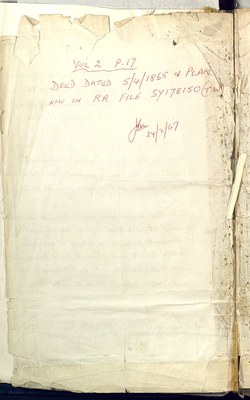 VOL 2 P.17
DEED DATED 5/4/1865 & PLAN
NOW IN RR FILE SY178150
24/2/67